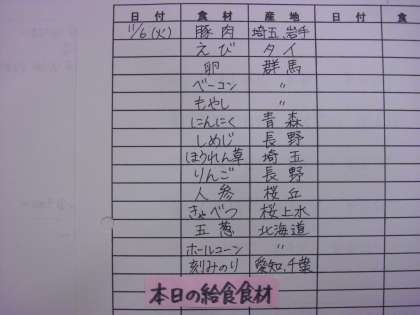 日付 食材 産地 日付 食
11/6(火) 豚肉 埼玉、岩手
えび タイ
卵 群馬
ベーコン 〃
もやし 〃
にんにく 青森
しめじ 長野
ほうれん草 埼玉
りんご 長野
人参 桜丘
きゃべつ 桜上水
玉葱 北海道
ホールコーン 〃
刻みのり 愛知、千葉
本日の給食食材